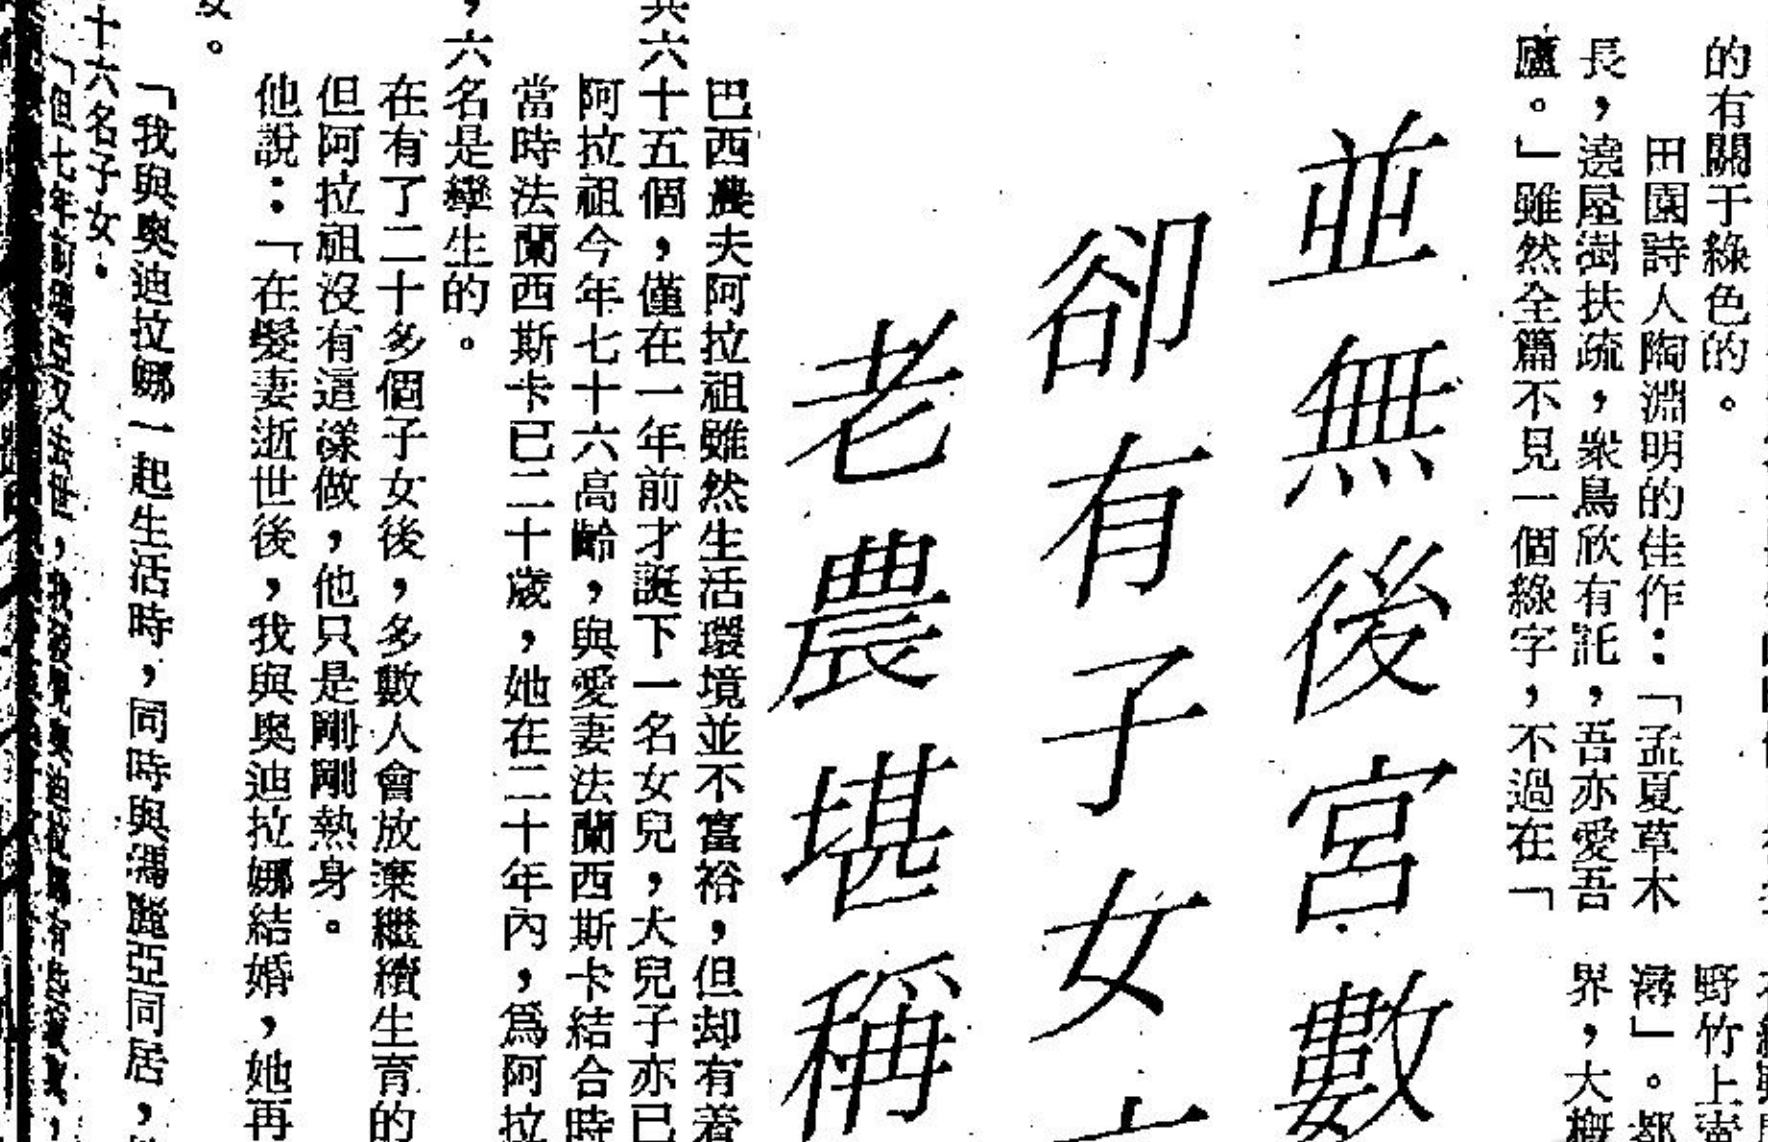 的有關于綠色的。
田園詩人陶淵明的佳作：「孟夏草木
長，遶屋澍扶疏，衆鳥欣有託，吾亦愛吾
廬。」雖然全篇不見一個綠字，不過在「
野竹上
潯」。都
界，大概
並無後宮數
卻有子女
老農堪稱
巴西農夫阿拉祖雖然生活環境並不富裕，但却有着
共六十五個，僅在一年前才誕下一名女兒，大兒子亦已
阿拉祖今年七十六高齡，與愛妻法蘭西斯卡結合時
當時法蘭西斯卡已二十歲，她在二十年內，爲阿拉
，六名是孿生的。
在有了二十多個子女後，多數人會放棄繼續生育的
但阿拉祖沒有這漾做，他只是剛剛熱身。
他說：「在髮妻逝世後，我與奧迪拉娜結婚，她再
「我與奧迪拉娜一起生活時，同時與瑪麗亞同居，
十六名子女。